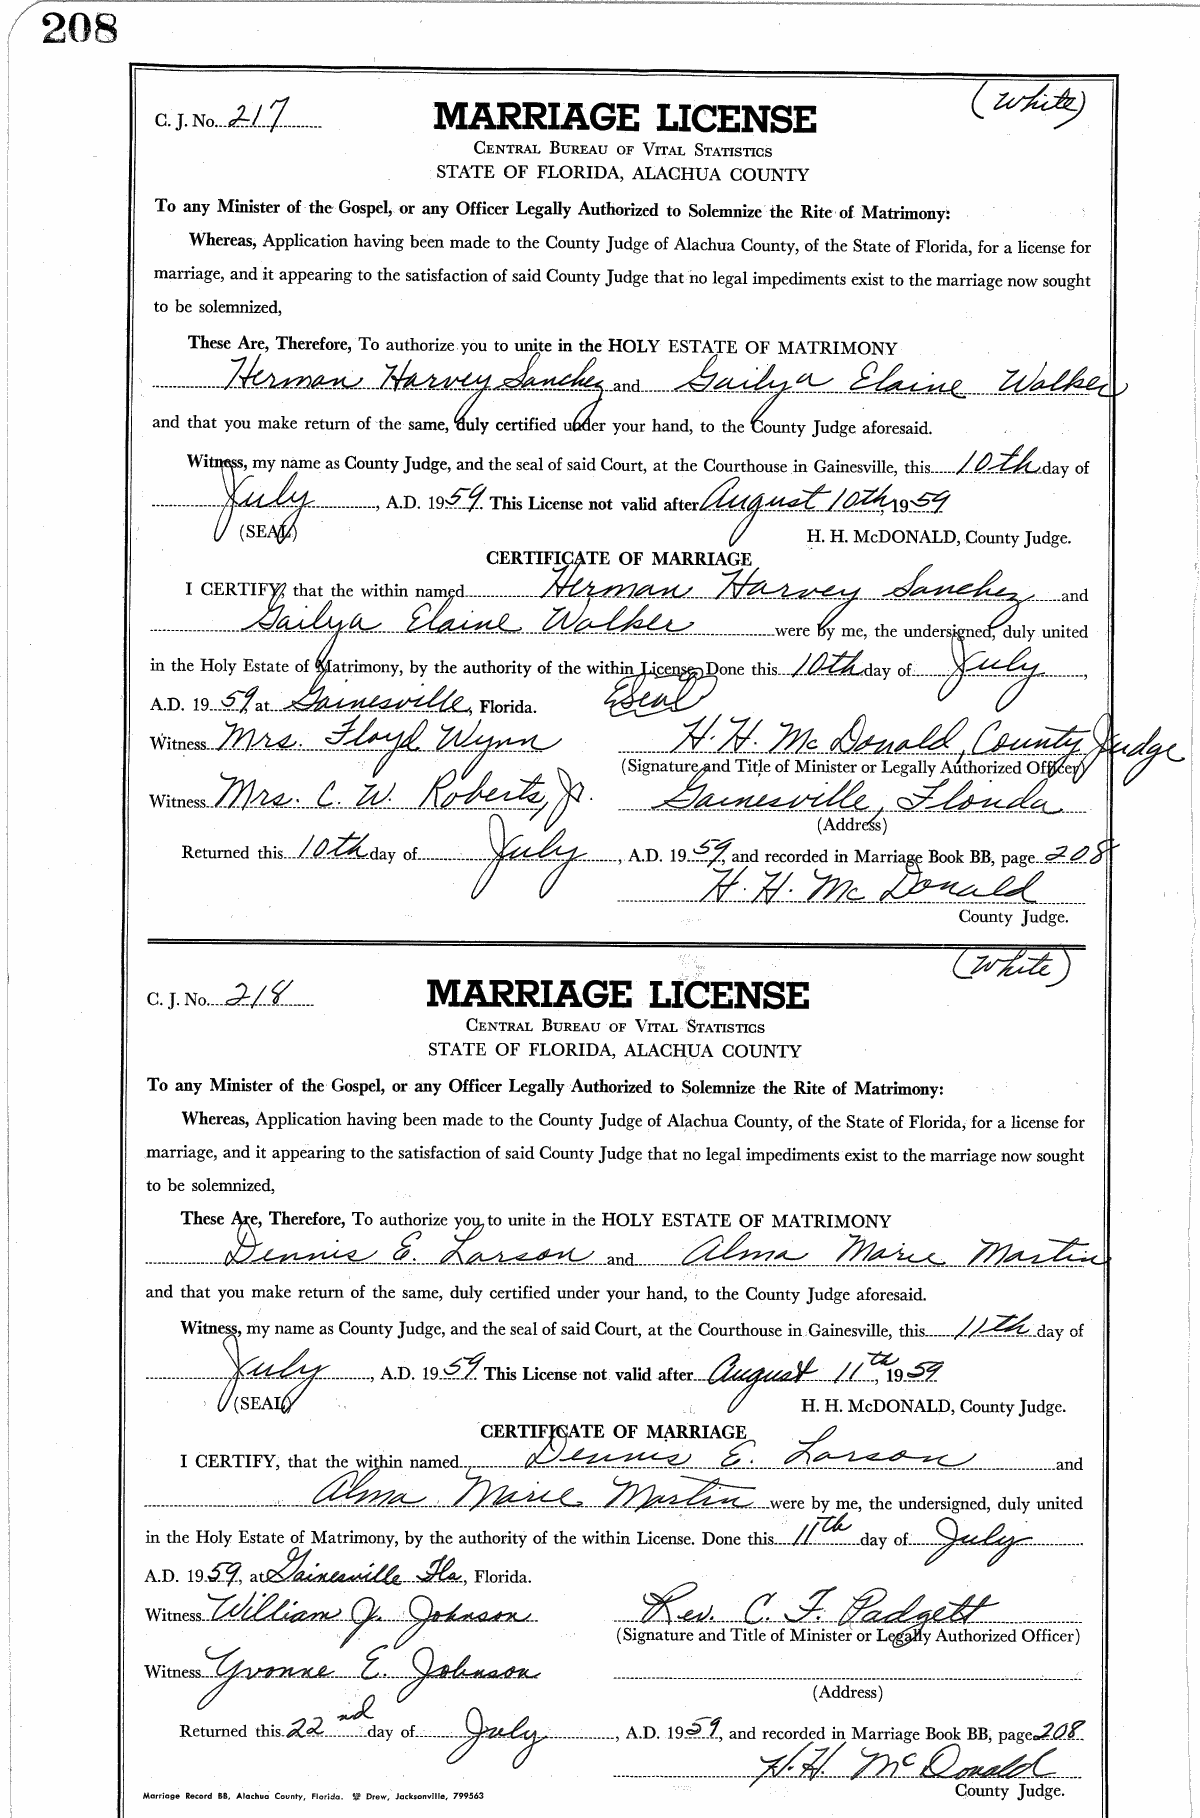 208
(White)
C. J. No. 217 MARRIAGE LICENSE
CENTRAL BUREAU OF VITAL STATISTICS
STATE OF FLORIDA, ALACHUA COUNTY
To any Minister of the Gospel, or any Officer Legally Authorized to Solemnize the Rite of Matrimony:
Whereas, Application having been made to the County Judge of Alachua County, of the State of Florida, for a license for
marriage, and it appearing to the satisfaction of said County Judge that no legal impediments exist to the marriage now sought
to be solemnized,
These Are, Therefore, To authorize you to unite in the HOLY ESTATE OF MATRIMONY
Herman Harvey Sanchez and Gailya Elaine Walker
and that you make return of the same, duly certified under your hand, to the County Judge aforesaid.
Witness, my name as County Judge, and the seal of said Court, at the Courthouse in Gainesville, this 10th day of
July, A.D. 1959. This License not valid after August 10th, 1959
(SEAL) H. H. McDONALD, County Judge.
CERTIFICATE OF MARRIAGE
I CERTIFY, that the within named Herman Harvey Sanchez and
Gailya Elaine Walker were by me, the undersigned, duly united
in the Holy Estate of Matrimony, by the authority of the within License. Done this 10th day of July,
A.D. 1959, at Gainesville, Florida. Seal
Witness Mrs. Floyd Wynn H. H. McDonald, County Judge
(Signature and Title of Minister or Legally Authorized Officer)
Witness Mrs. C. W. Roberts, Jr. Gainesville, Florida
(Address)
Returned this 10th day of July, A.D. 1959, and recorded in Marriage Book BB, page 208
H. H. McDonald
County Judge.
(White)
C. J. No. 218 MARRIAGE LICENSE
CENTRAL BUREAU OF VITAL STATISTICS
STATE OF FLORIDA, ALACHUA COUNTY
To any Minister of the Gospel, or any Officer Legally Authorized to Solemnize the Rite of Matrimony:
Whereas, Application having been made to the County Judge of Alachua County, of the State of Florida, for a license for
marriage, and it appearing to the satisfaction of said County Judge that no legal impediments exist to the marriage now sought
to be solemnized,
These Are, Therefore, To authorize you to unite in the HOLY ESTATE OF MATRIMONY
Dennis E. Larson and Alma Marie Martin
and that you make return of the same, duly certified under your hand, to the County Judge aforesaid.
Witness, my name as County Judge, and the seal of said Court, at the Courthouse in Gainesville, this 11th day of
July, A.D. 1959. This License not valid after August 11th, 1959
(SEAL) H. H. McDONALD, County Judge.
CERTIFICATE OF MARRIAGE
I CERTIFY, that the within named Dennis E. Larson and
Alma Marie Martin were by me, the undersigned, duly united
in the Holy Estate of Matrimony, by the authority of the within License. Done this 11th day of July
A.D. 1959, at Gainesville Fla, Florida.
Witness William J. Johnson Rev. C. F. Padgett
(Signature and Title of Minister or Legally Authorized Officer)
Witness Yvonne E. Johnson
(Address)
Returned this 22nd day of July, A.D. 1959, and recorded in Marriage Book BB, page 208
H. H. McDonald
County Judge.
Marriage Record BB, Alachua County, Florida. Drew, Jacksonville, 799563